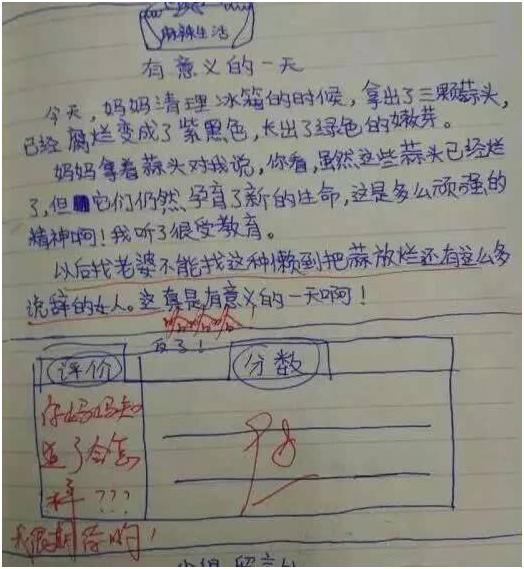 麻辣生活
有意义的一天
今天，妈妈清理冰箱的时候，拿出了三颗蒜头，
已经腐烂变成了紫黑色，长出了绿色的嫩芽。
妈妈拿着蒜头对我说，你看，虽然这些蒜头已经烂
了，但它们仍然孕育了新的生命，这是多么顽强的
精神啊！我听了很受教育。
以后找老婆不能找这种懒到把蒜放烂还有这么多
说辞的女人。这真是有意义的一天啊！
哈哈哈哈
反了！
评价
分数
你妈妈知
道了会怎
样???